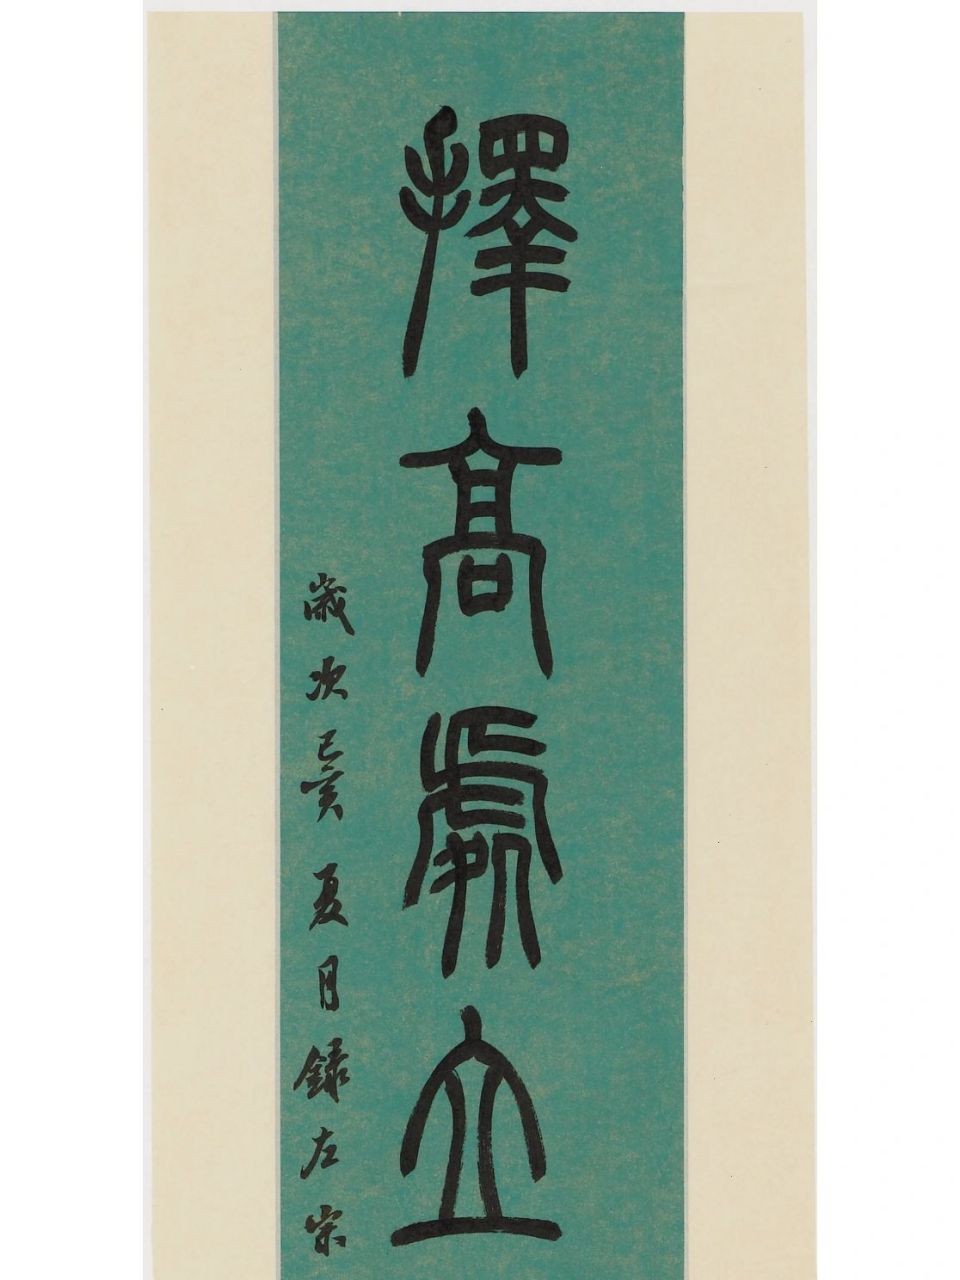 擇高處立
歲次己亥夏月錄左宗